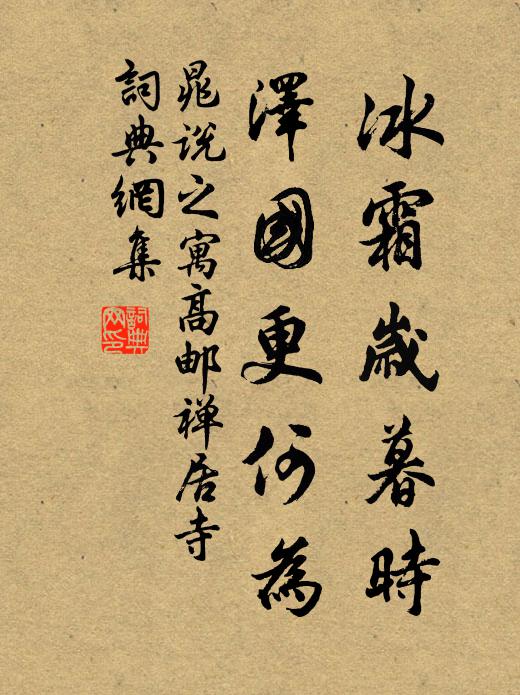 冰霜歲暮時
澤國更何為
晁说之寓高邮禅居寺
詞典網集
詞典网印